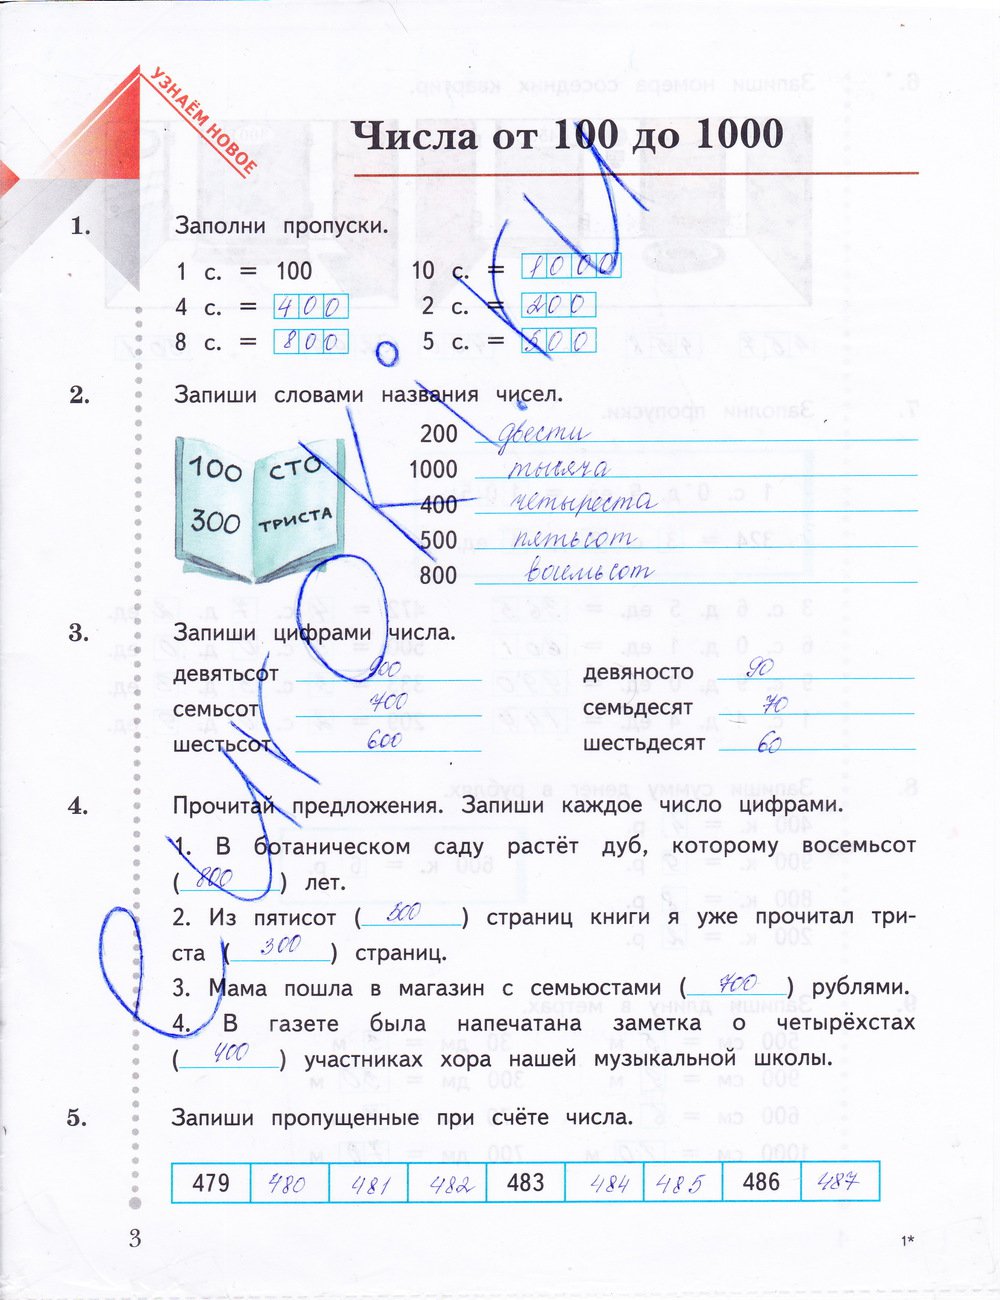 УЗНАЁМ НОВОЕ
Числа от 100 до 1000
1. Заполни пропуски.
1 с. = 100 10 с. = 1000
4 с. = 400 2 с. = 200
8 с. = 800 5 с. = 500
2. Запиши словами названия чисел.
100 СТО
300 ТРИСТА
200 двести
1000 тысяча
400 четыреста
500 пятьсот
800 восемьсот
3. Запиши цифрами числа.
девятьсот 900 девяносто 90
семьсот 700 семьдесят 70
шестьсот 600 шестьдесят 60
4. Прочитай предложения. Запиши каждое число цифрами.
1. В ботаническом саду растёт дуб, которому восемьсот
(800) лет.
2. Из пятисот (500) страниц книги я уже прочитал три-
ста (300) страниц.
3. Мама пошла в магазин с семьюстами (700) рублями.
4. В газете была напечатана заметка о четырёхстах
(400) участниках хора нашей музыкальной школы.
5. Запиши пропущенные при счёте числа.
479 480 481 482 483 484 485 486 487
3 1*